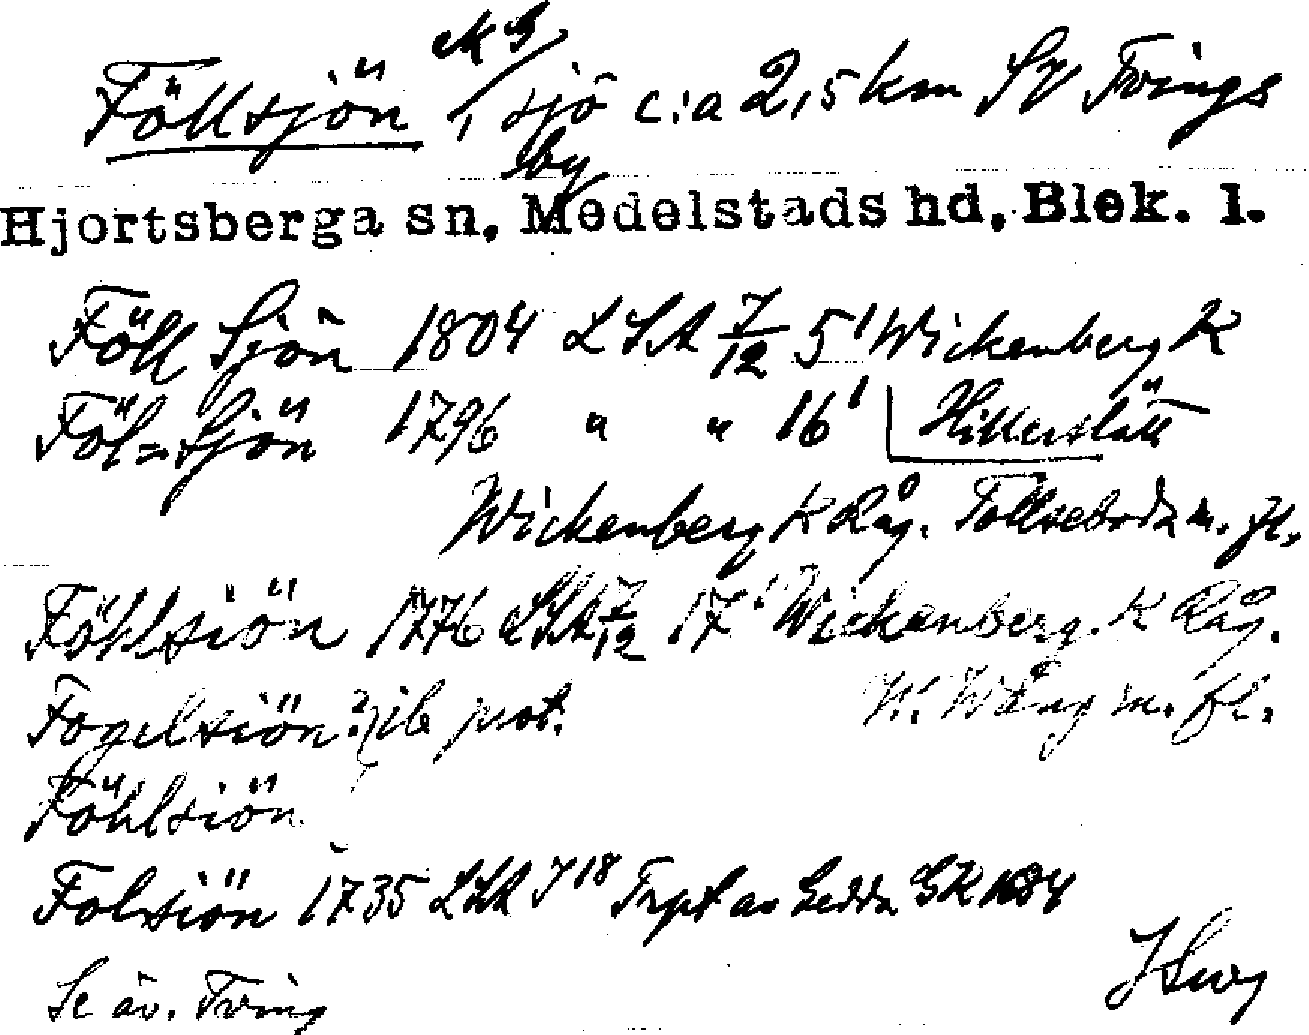 Föllsjön, sjö c:a 2,5 km SV Tvings
by
Hjortsberga sn, Medelstads hd, Blek. l.
Föll Sjön 1804 LSA 7/12 5¹ Wickenberg K
Föl=Sjön 1796 " " 16¹ Hillerslätt
Wickenberg K Råg. m. fl.
Föhlsiön 1776 LSA 7/12 17¹ Wickenberg K Råg.
Fogelsiön? ib prot. W. Wång m. fl.
Föhlsiön
Folsiön 1735 LSA J18 av Gedda GK
Se äv. Tving